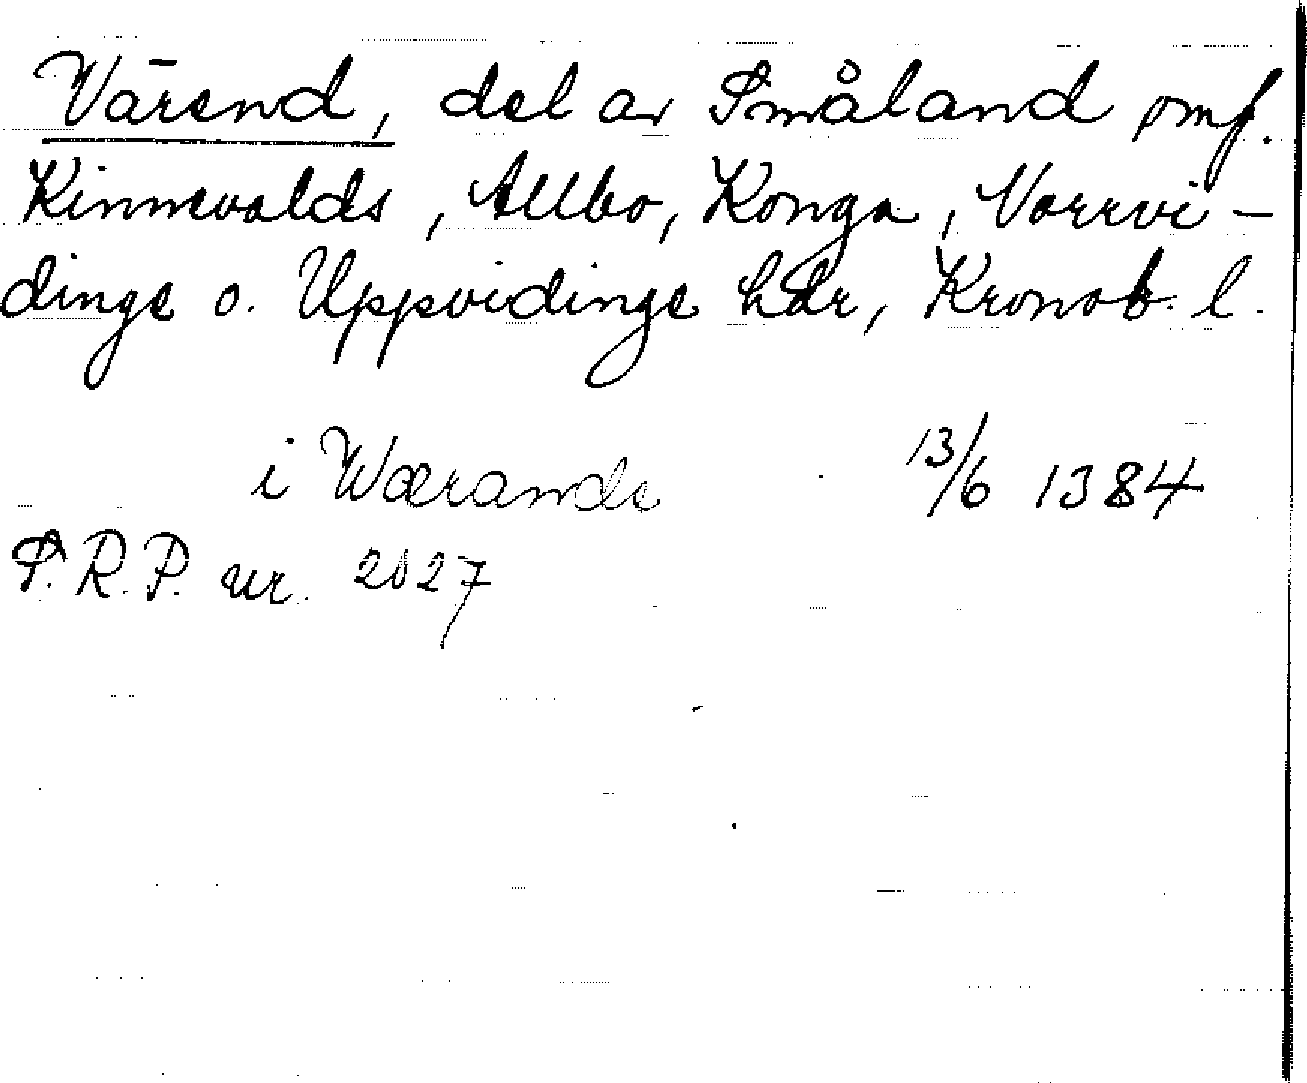 Värend, del av Småland omf.
Kinnevalds, Allbo, Konga, Norrvi-
dinge o. Uppvidinge här, Kronob. l.
i Wærande 13/6 1384
S.R.P. nr. 2027